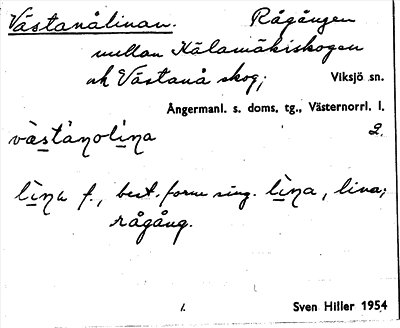 Västanålinan. Rågången
mellan Kälamäkiskogen
och Västanå skog; Viksjö sn.
Ångermanl. s. doms. tg., Västernorrl. l.
västanolina 2.
lina f., best. form sing. lina, lina;
rågång.
1. Sven Hiller 1954